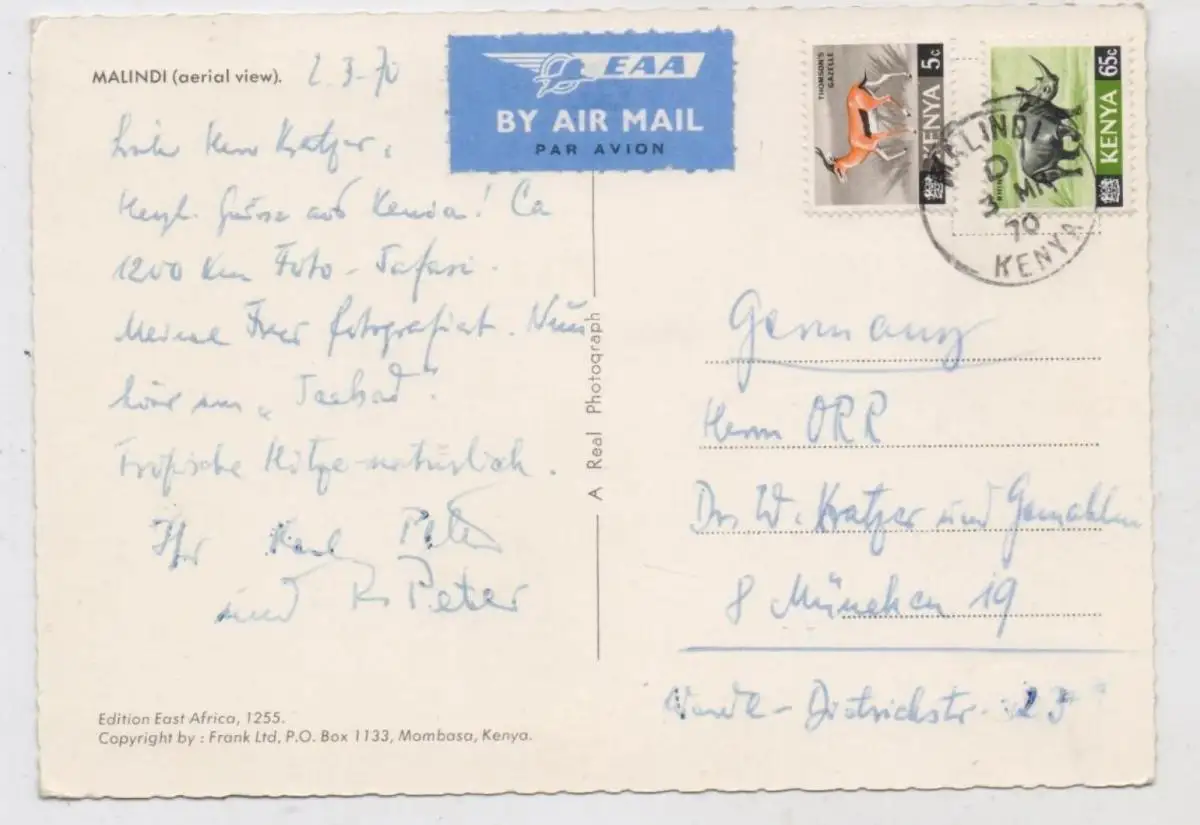 MALINDI (aerial view).
2.3.70
EAA
BY AIR MAIL
PAR AVION
THOMSON'S
GAZELLE
KENYA 5c
RHINO
KENYA 65c
MALINDI
D
3 MR
70
KENYA
Herr Kratzer,
Herzl. Grüsse aus Kenia! Ca
1200 Km Foto-Safari.
Meine Frau fotografiert. Nun
"Seebad".
Tropische Hitze natürlich.
Ihr Karl Peter
und Peter
Edition East Africa, 1255.
Copyright by : Frank Ltd, P.O. Box 1133, Mombasa, Kenya.
A Real Photograph
Germany
Herrn ORR
Dr. W. Kratzer und Gemahlin
8 München 19
Dietrichstr. 23